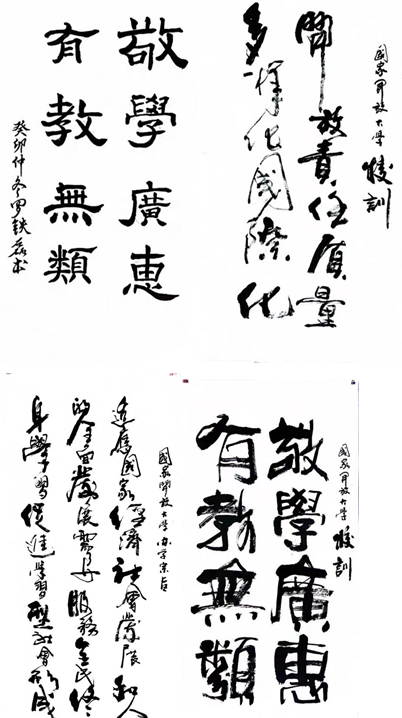 敬學廣惠
有教無類
癸卯仲冬
國家開放大學 校訓
開放責任質量
多样化國際化
國家開放大學 校訓
敬學廣惠
有教無類
國家開放大學办学宗旨
适應國家經濟社會發展和人
的全面發展需要服務全民終
身學習促進學習型社會形成